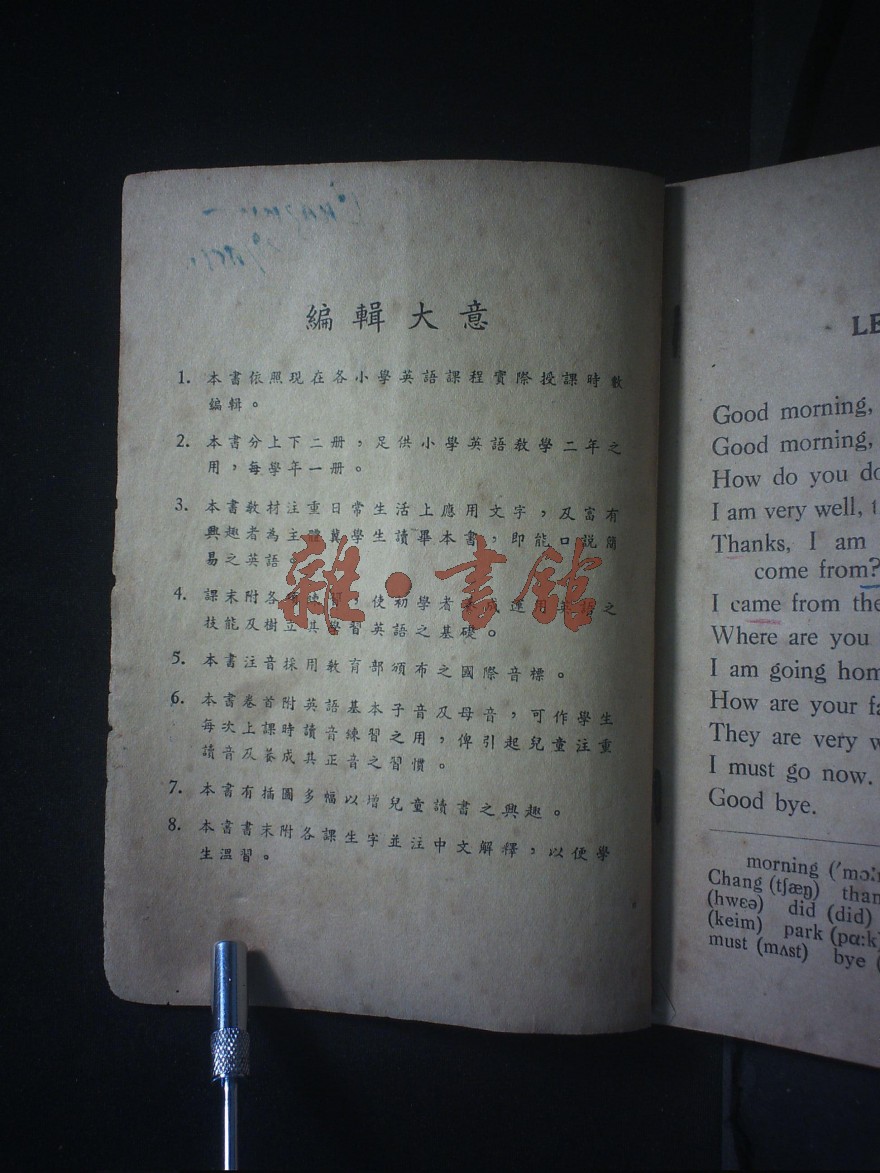 編輯大意
1. 本書依照現在各小學英語課程實際授課時數
編輯。
2. 本書分上下二册，足供小學英語教學二年之
用，每學年一册。
3. 本書教材注重日常生活上應用文字，及富有
興趣者為主體冀學生讀畢本書，即能口說簡
易之英語。
4. 課末附各，使初學者成運用英語之
技能及樹立其學習英語之基礎。
5. 本書注音採用教育部頒布之國際音標。
6. 本書卷首附英語基本子音及母音，可作學生
每次上課時讀音練習之用，俾引起兒童注重
讀音及養成其正音之習慣。
7. 本書有插圖多幅以增兒童讀書之興趣。
8. 本書書末附各課生字並注中文解釋，以便學
生溫習。
雜·書館
LE
Good morning,
Good morning,
How do you do
I am very well, t
Thanks, I am
come from?
I came from the
Where are you
I am going hom
How are your fa
They are very w
I must go now.
Good bye.
morning ('mɔ:r
Chang (tʃæŋ) than
(hwɛə) did (did)
(keim) park (pɑ:k)
must (mʌst) bye (